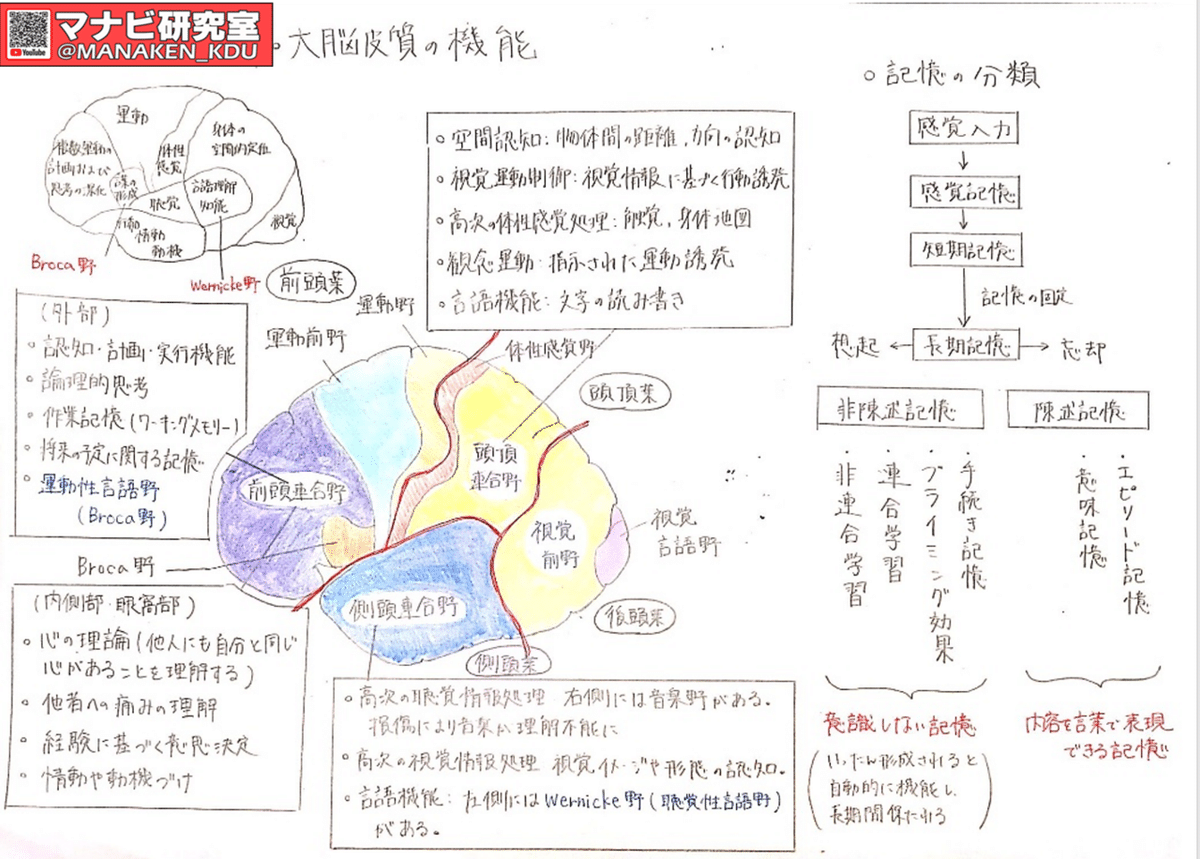 マナビ研究室
@MANAKEN_KDU
YouTube
○ 大脳皮質の機能
運動
複数運動の
計画および
思考の深化
言葉の
形成
体性
感覚
身体の
空間的定位
聴覚
言語理解
知能
視覚
行動
情動
動機
Broca野
Wernicke野
前頭葉
運動野
運動前野
体性感質野
頭頂葉
○ 空間認知：物体間の距離、方向の認知
○ 視覚運動制御：視覚情報に基づく行動誘発
○ 高次の体性感覚処理：触覚、身体地図
○ 観念運動：指示された運動誘発
○ 言語機能：文字の読み書き
(外部)
○ 認知・計画・実行機能
○ 論理的思考
○ 作業記憶(ワーキングメモリー)
○ 将来の予定に関する記憶
○ 運動性言語野
(Broca野)
前頭連合野
頭頂
連合野
視覚
前野
視覚
言語野
側頭連合野
Broca野
後頭葉
側頭葉
(内側部・眼窩部)
○ 心の理論(他人にも自分と同じ
心があることを理解する)
○ 他者への痛みの理解
○ 経験に基づく意思決定
○ 情動や動機づけ
○ 高次の聴覚情報処理 右側には音楽野がある。
損傷により音楽が理解不能に
○ 高次の視覚情報処理 視覚イメージや形態の認知。
○ 言語機能：左側にはWernicke野(聴覚性言語野)
がある。
○ 記憶の分類
感覚入力
↓
感覚記憶
↓
短期記憶
記憶の固定
想起 ← 長期記憶 → 忘却
非陳述記憶
陳述記憶
・手続き記憶
・プライミング効果
・連合学習
・非連合学習
・エピソード記憶
・意味記憶
意識しない記憶
(いったん形成されると
自動的に機能し、
長期間保たれる)
内容を言葉で表現
できる記憶